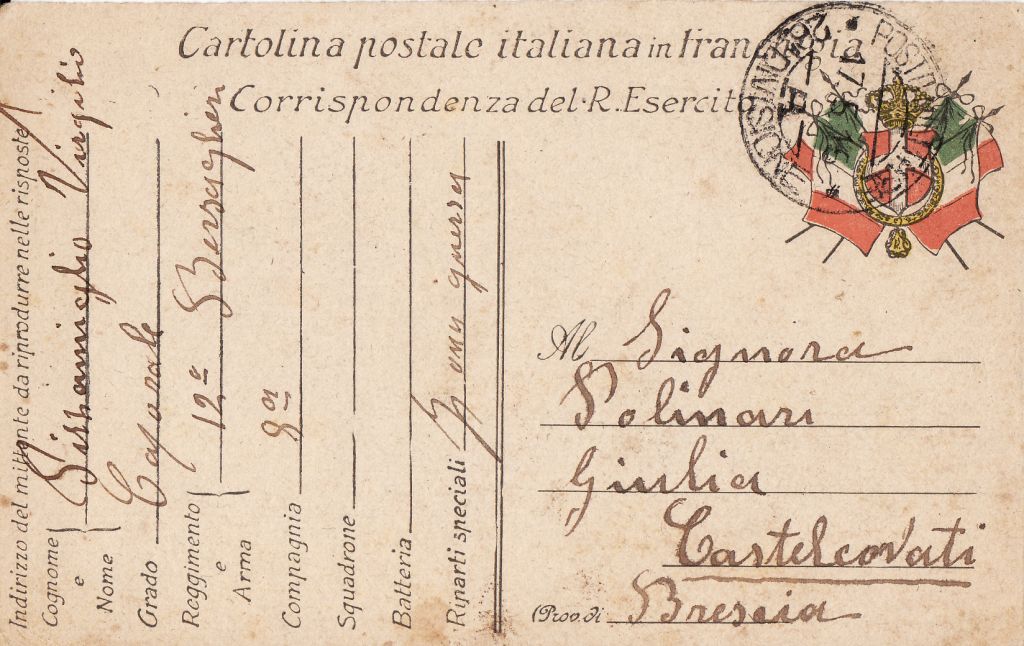 Cartolina postale italiana in Fran ia
Corrispondenza del R. Esercito
POSTA
Al Signora
Polinari
Giulia
Castelcovati
(Prov. di Brescia
Indirizzo del mittente da riprodurre nelle risposte
Cognome e Nome Virgilio
Grado Caporale
Reggimento e Arma 12º Bersaglieri
Compagnia 9ª
Squadrone
Batteria
Riparti speciali Zona guerra